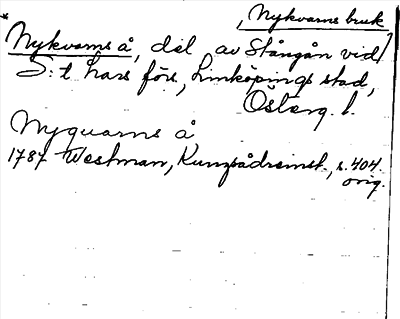 Nykvarns bruk
* Nykvarns å, del av Stångån vid
S:t Lars förs, Linköpings stad,
Österg. l.
Nyquarns å
1787 Westman, s. 404.
orig.